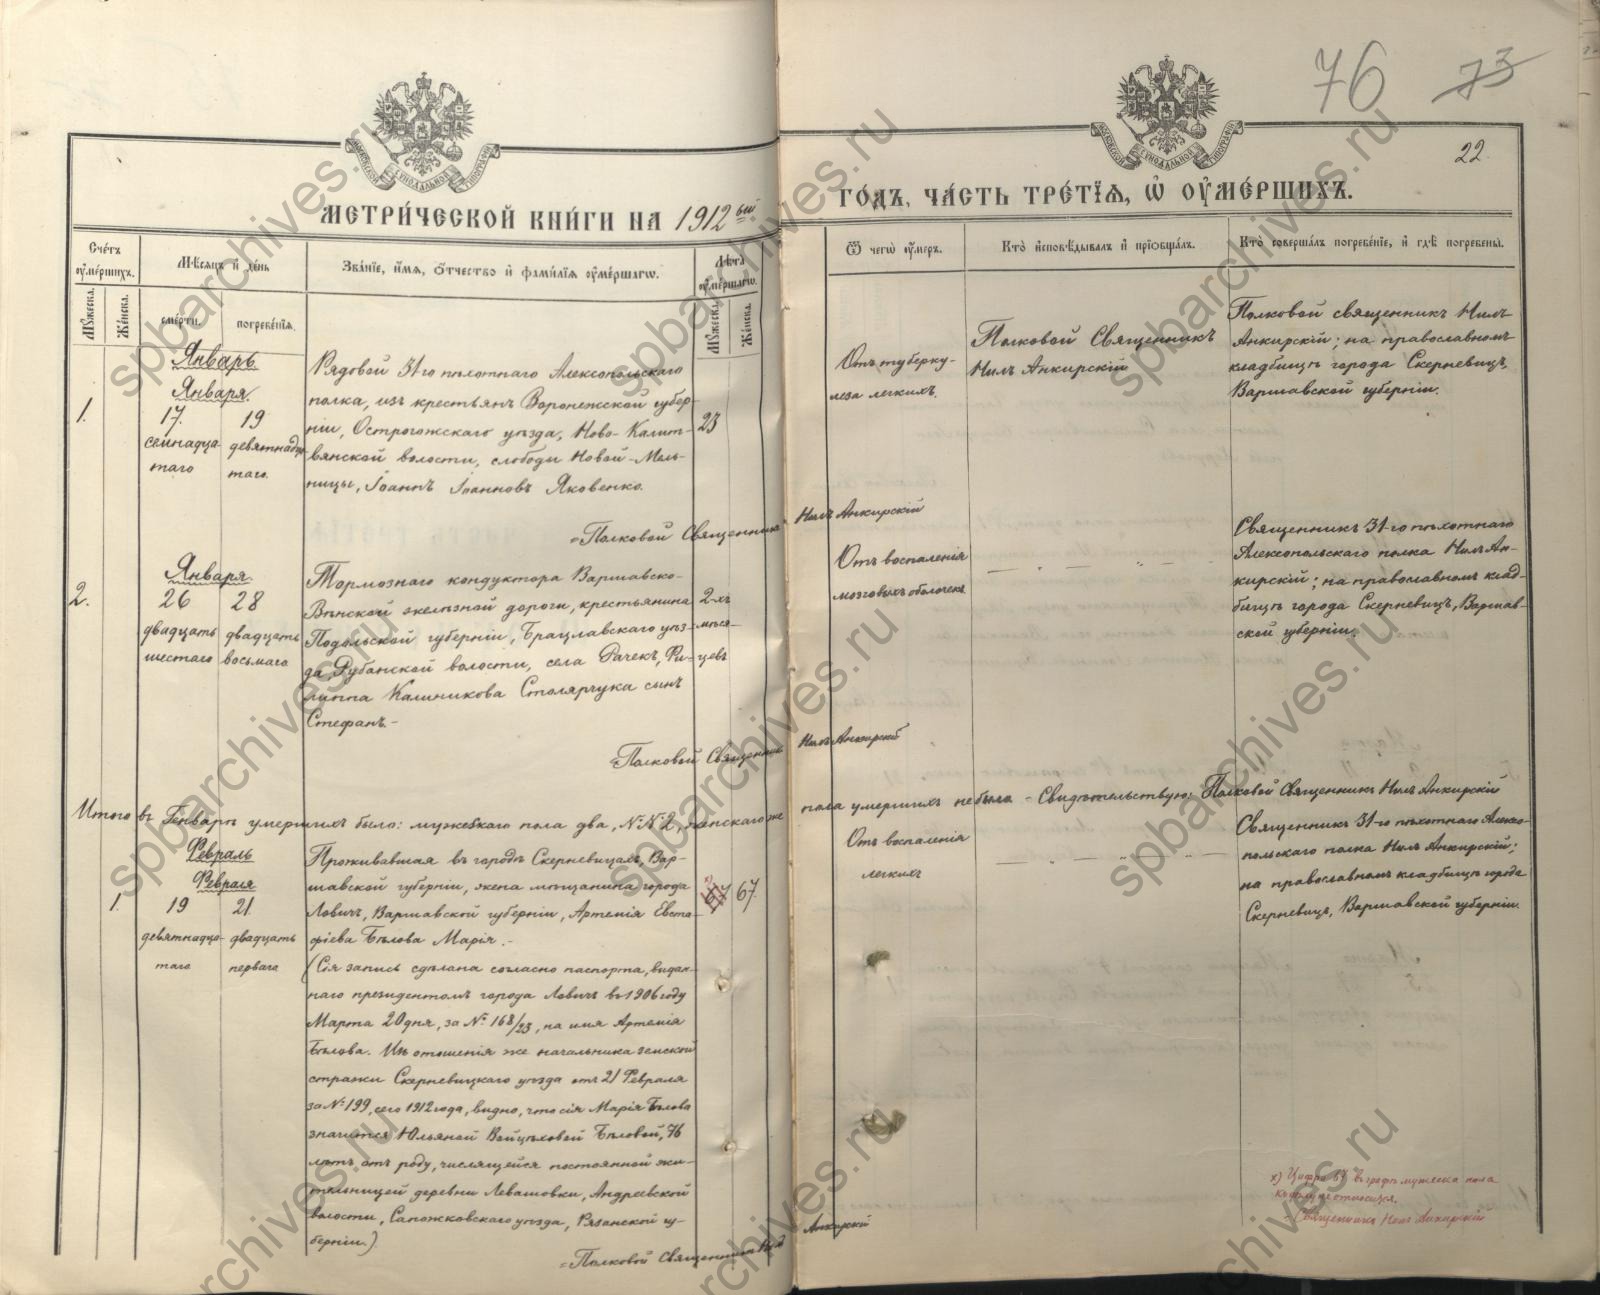 76 73
22.
МОСКОВСКОЙ СѴНОДАЛЬНОЙ ТИПОГРАФІИ
МОСКОВСКОЙ СѴНОДАЛЬНОЙ ТИПОГРАФІИ
МЕТРИ́ЧЕСКОЙ КНИ́ГИ НА 1912 ый
ГО́ДЪ, ЧА́СТЬ ТРЕ́ТІѦ, Ѡ҆ ОУ҆МЕ́РШИХЪ.
Сче́тъ оу҆ме́ршихъ.
Мꙋ́жеска.
Же́нска.
Мѣ́сяцъ и҆ де́нь
сме́рти.
погребе́нїѧ.
Зва́нїе, и҆́мѧ, ѻ҆́тчество и҆ фами́лїѧ оу҆ме́ршагѡ.
Лѣ́та оу҆ме́ршагѡ.
Мꙋ́жеска.
Же́нска.
Ѿ чегѡ̀ оу҆́меръ.
Кто̀ и҆сповѣ́дывалъ и҆ прїѡбща́лъ.
Кто̀ соверша́лъ погребе́нїе, и҆ гдѣ̀ погребены̀.
Январь
1.
Января.
17. 19
семнадца-
таго
девятнадца-
таго.
Рядовой 31-го пѣхотнаго Алексопольскаго
полка, изъ крестьянъ Воронежской губер-
ніи, Острогожскаго уѣзда, Ново-Калит-
вянской волости, слободы Новой-Мель-
ницы, Іоаннъ Іоанновъ Яковенко.
23
Отъ туберку-
леза легкихъ.
Полковой Священникъ
Нилъ Анкирскій
Полковой священникъ Нилъ
Анкирскій; на православномъ
кладбищѣ города Скерневицъ,
Варшавской губерніи.
Полковой Священникъ Нилъ Анкирскій
2.
Января.
26 28
двадцать
шестаго
двадцать
восьмаго
Тормознаго кондуктора Варшавско-
Вѣнской желѣзной дороги, крестьянина
Подольской губерніи, Брацлавскаго уѣз-
да, Рубанской волости, села Рачекъ, Фи-
липпа Калиникова Столярчука сынъ
Стефанъ.-
2-хъ
мѣся-
цевъ
Отъ воспаленія
мозговыхъ оболочекъ.
— „ — „ —
Священникъ 31-го пѣхотнаго
Алексопольскаго полка Нилъ Ан-
кирскій; на православномъ клад-
бищѣ города Скерневицъ, Варшав-
ской губерніи.
Полковой Священникъ Нилъ Анкирскій
Итого въ Генварѣ умершихъ было: мужескаго пола два, №№ 2, женскаго же пола умершихъ не было - Свидѣтельствую: Полковой Священникъ Нилъ Анкирскій
Февраль
1.
Февраля
19 21.
девятнадца-
таго
двадцать
перваго
Проживавшая въ городѣ Скерневицахъ, Вар-
шавской губерніи, жена мѣщанина города
Ловичъ, Варшавской губерніи, Артемія Евста-
фіева Бѣлова Марія.-
(Сія запись сдѣлана согласно паспорта, выдан-
наго президентомъ города Ловичъ въ 1906 году
Марта 20 дня, за № 168/23, на имя Артемія
Бѣлова. Изъ отношенія же начальника земской
стражи Скерневицкаго уѣзда отъ 21 Февраля
за № 199, сего 1912 года, видно, что сія Марія Бѣлова
значится Юльяной Войцѣховой Бѣловой, 76
лѣтъ отъ роду, числящейся постоянной жи-
тельницей деревни Левашовки, Андреевской
волости, Сапожковскаго уѣзда, Рязанской гу-
берніи.)
х) 67 67.
Отъ воспаленія
легкихъ
— „ — „ —
Священникъ 31-го пѣхотнаго Алексо-
польскаго полка Нилъ Анкирскій;
на православномъ кладбищѣ города
Скерневицъ, Варшавской губерніи.
х) Цифра 67 въ графѣ мужеска пола
къ дѣлу не относится.
Священникъ Нилъ Анкирскій
Полковой Священникъ Нилъ Анкирскій
spbarchives.ru